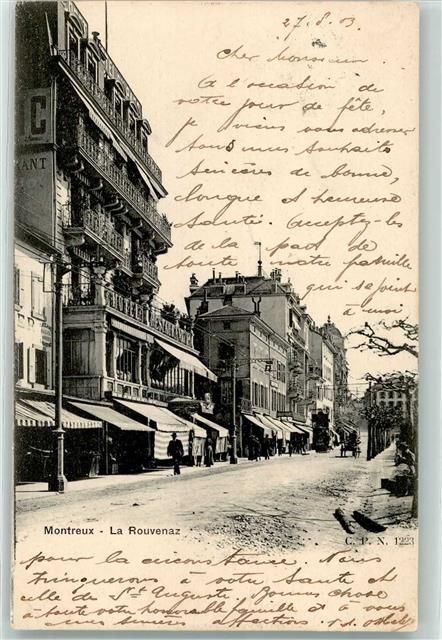 27.8.03.
Cher Monsieur.
A l'occasion de
votre jour de fête,
je viens vous adresser
tous mes souhaits
sincères de bonne,
longue et heureuse
santé. Acceptez-les
de la part de
toute notre famille
qui se joint
à moi
C
RANT
Montreux - La Rouvenaz
C. P. N. 1223
pour la circonstance. Nous
trinquerons à votre santé et
celle de St Auguste. Bonne chose
à toute votre honorable famille et à vous
mes sincères affections.